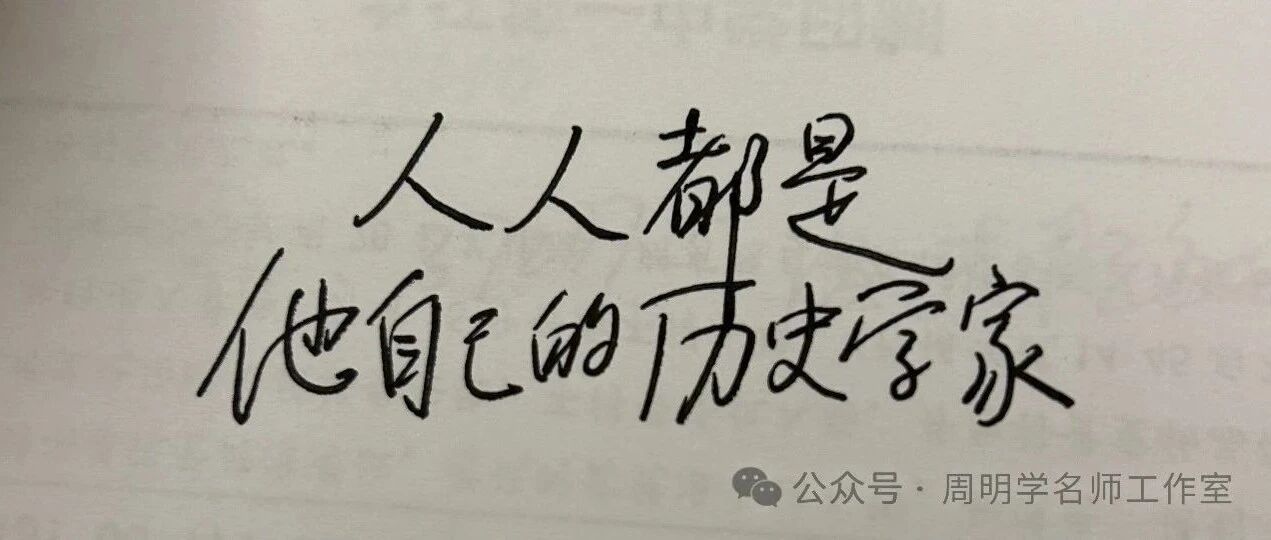 人人都是
他自己的历史学家
公众号·周明学名师工作室